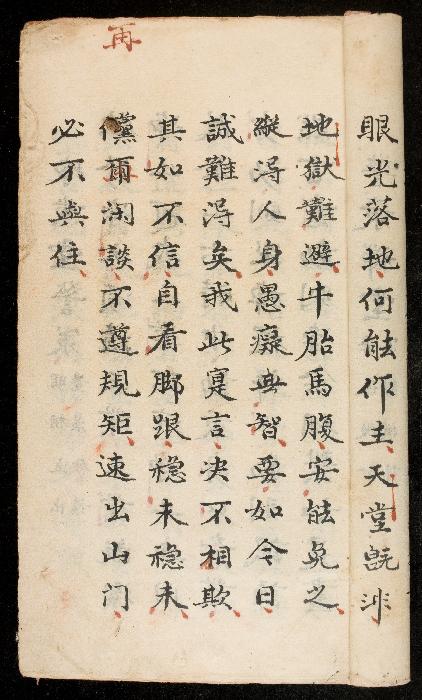 眼光落地何能作主天堂既非
地獄難避牛胎馬腹安能免之
縱淂人身愚癡無智要如今日
誠難淂矣我此寔言决不相欺
其如不信自看脚跟穏未穏未
儻爾闲談不遵規矩速出山门
必不與住
再